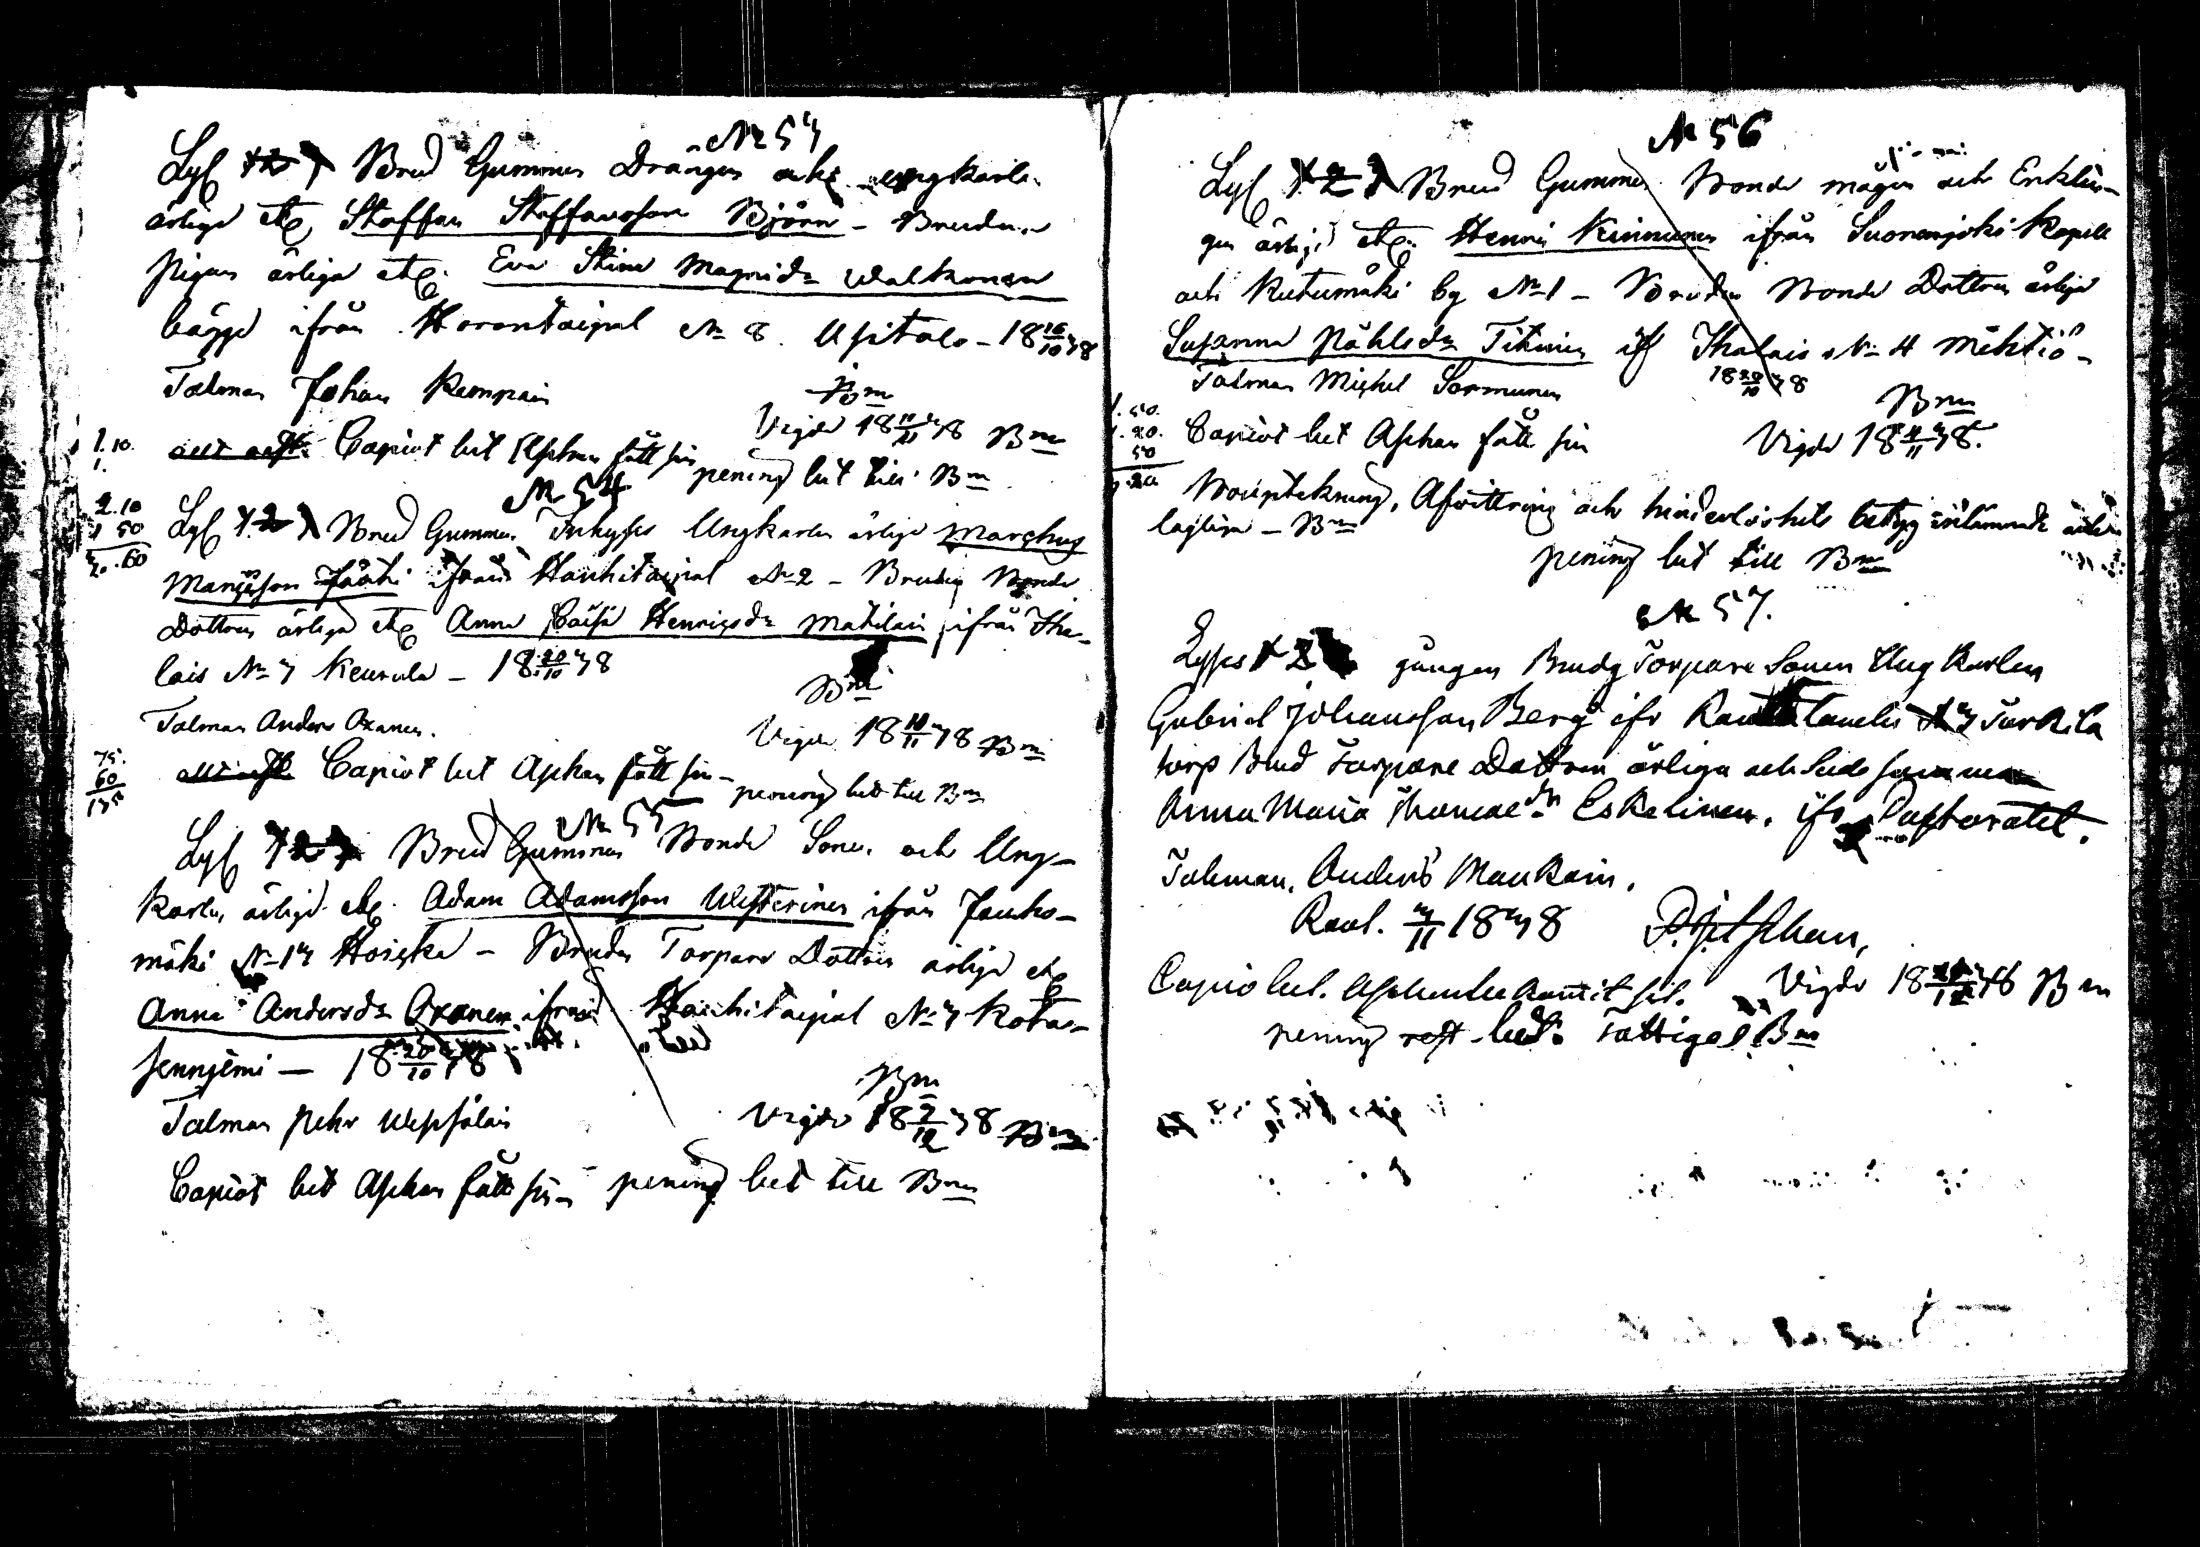 No 53
Lyst 1 2 3 Brud Gummen Drängen och ungkarln
ärlige etc Staffan Staffansson Björn - Bruden
Pigan ärliga etc. Eva Stina Magnidr Walkonen
bägge ifrån Horontaipal No 8. Upitalo - 18 16/10 78
Talman Johan Rempain Bm
Vigde 18 11/11 78 Bm
1.10.
1.
Capiot lut Askan fått sin
pening lut till Bm
2.10
1 50
3.60
No 54
Lyst 1 2 3 Brud Gummen Inhyses Ungkarln ärlige Marckus
Marcusson Jääski ifrån Hauhitaipal No 2 - Bruden Bonde
Dottren ärliga etc Anna Caisa Henricsdr Matilain ifrån Iha-
lais No 7 Keurula - 18 20/10 78
Bm
Talman Anders Oxanen.
Vigde 18 11/11 78 Bm
75.
60
135
Capiot lut Askan fått sin -
pening lut till Bm
No 55
Lyst 1 2 3 Brud Gummen Bonde Sonen och Ung-
karln ärlige etc. Adam Adamsson Westerinen ifrån Jauho-
mäki No 17 Hoiska - Bruden Torpare Dottren ärliga etc
Anna Andersdr Oxanen ifrån Hauhitaipal No 7 Kota-
senniemi - 18 20/10 78
Bm
Talman Pehr Wepsälain
Vigde 18 2/12 78 Bm
Capiot lut Askan fått sin pening lut till Bm
No 56
Lyst 1 2 3 Brud Gummen Bonde mågen och Enklin-
gen ärlige etc. Henric Kinnunen ifrån Suonenjoki Kapell
och Kutumäki by No 1 - Bruden Bonde Dottren ärliga
Susanna Påhlsdr Titinen ifr Ihalais No 4 Mehtiö -
18 20/10 78
Talman Michel Sormunen
Bm
1.50.
1.20.
50
3.20
Capiot lut Askan fått sin
Vigde 18 11/11 78.
Bouptekning, Afvittring och hinderlöshets betyg inlämnade
lagliga - Bm
pening lut till Bm
No 57.
Lyses 1 2 gången Brudg Torpare Sonen Ung Karlen
Gabriel Johansson Berg ifr Rautalambi No 3 Turkila
torp Brud Torpare Dottren ärliga och Sedesamma
Anna Maria Thomaedr Eskelinen. ifr Pastoratet.
Talman. Anders Maukain.
Raul. 3/11 1878
Capio lut.
Vigde 18 26/12 78 Bm
pening lut. Fattige Bm